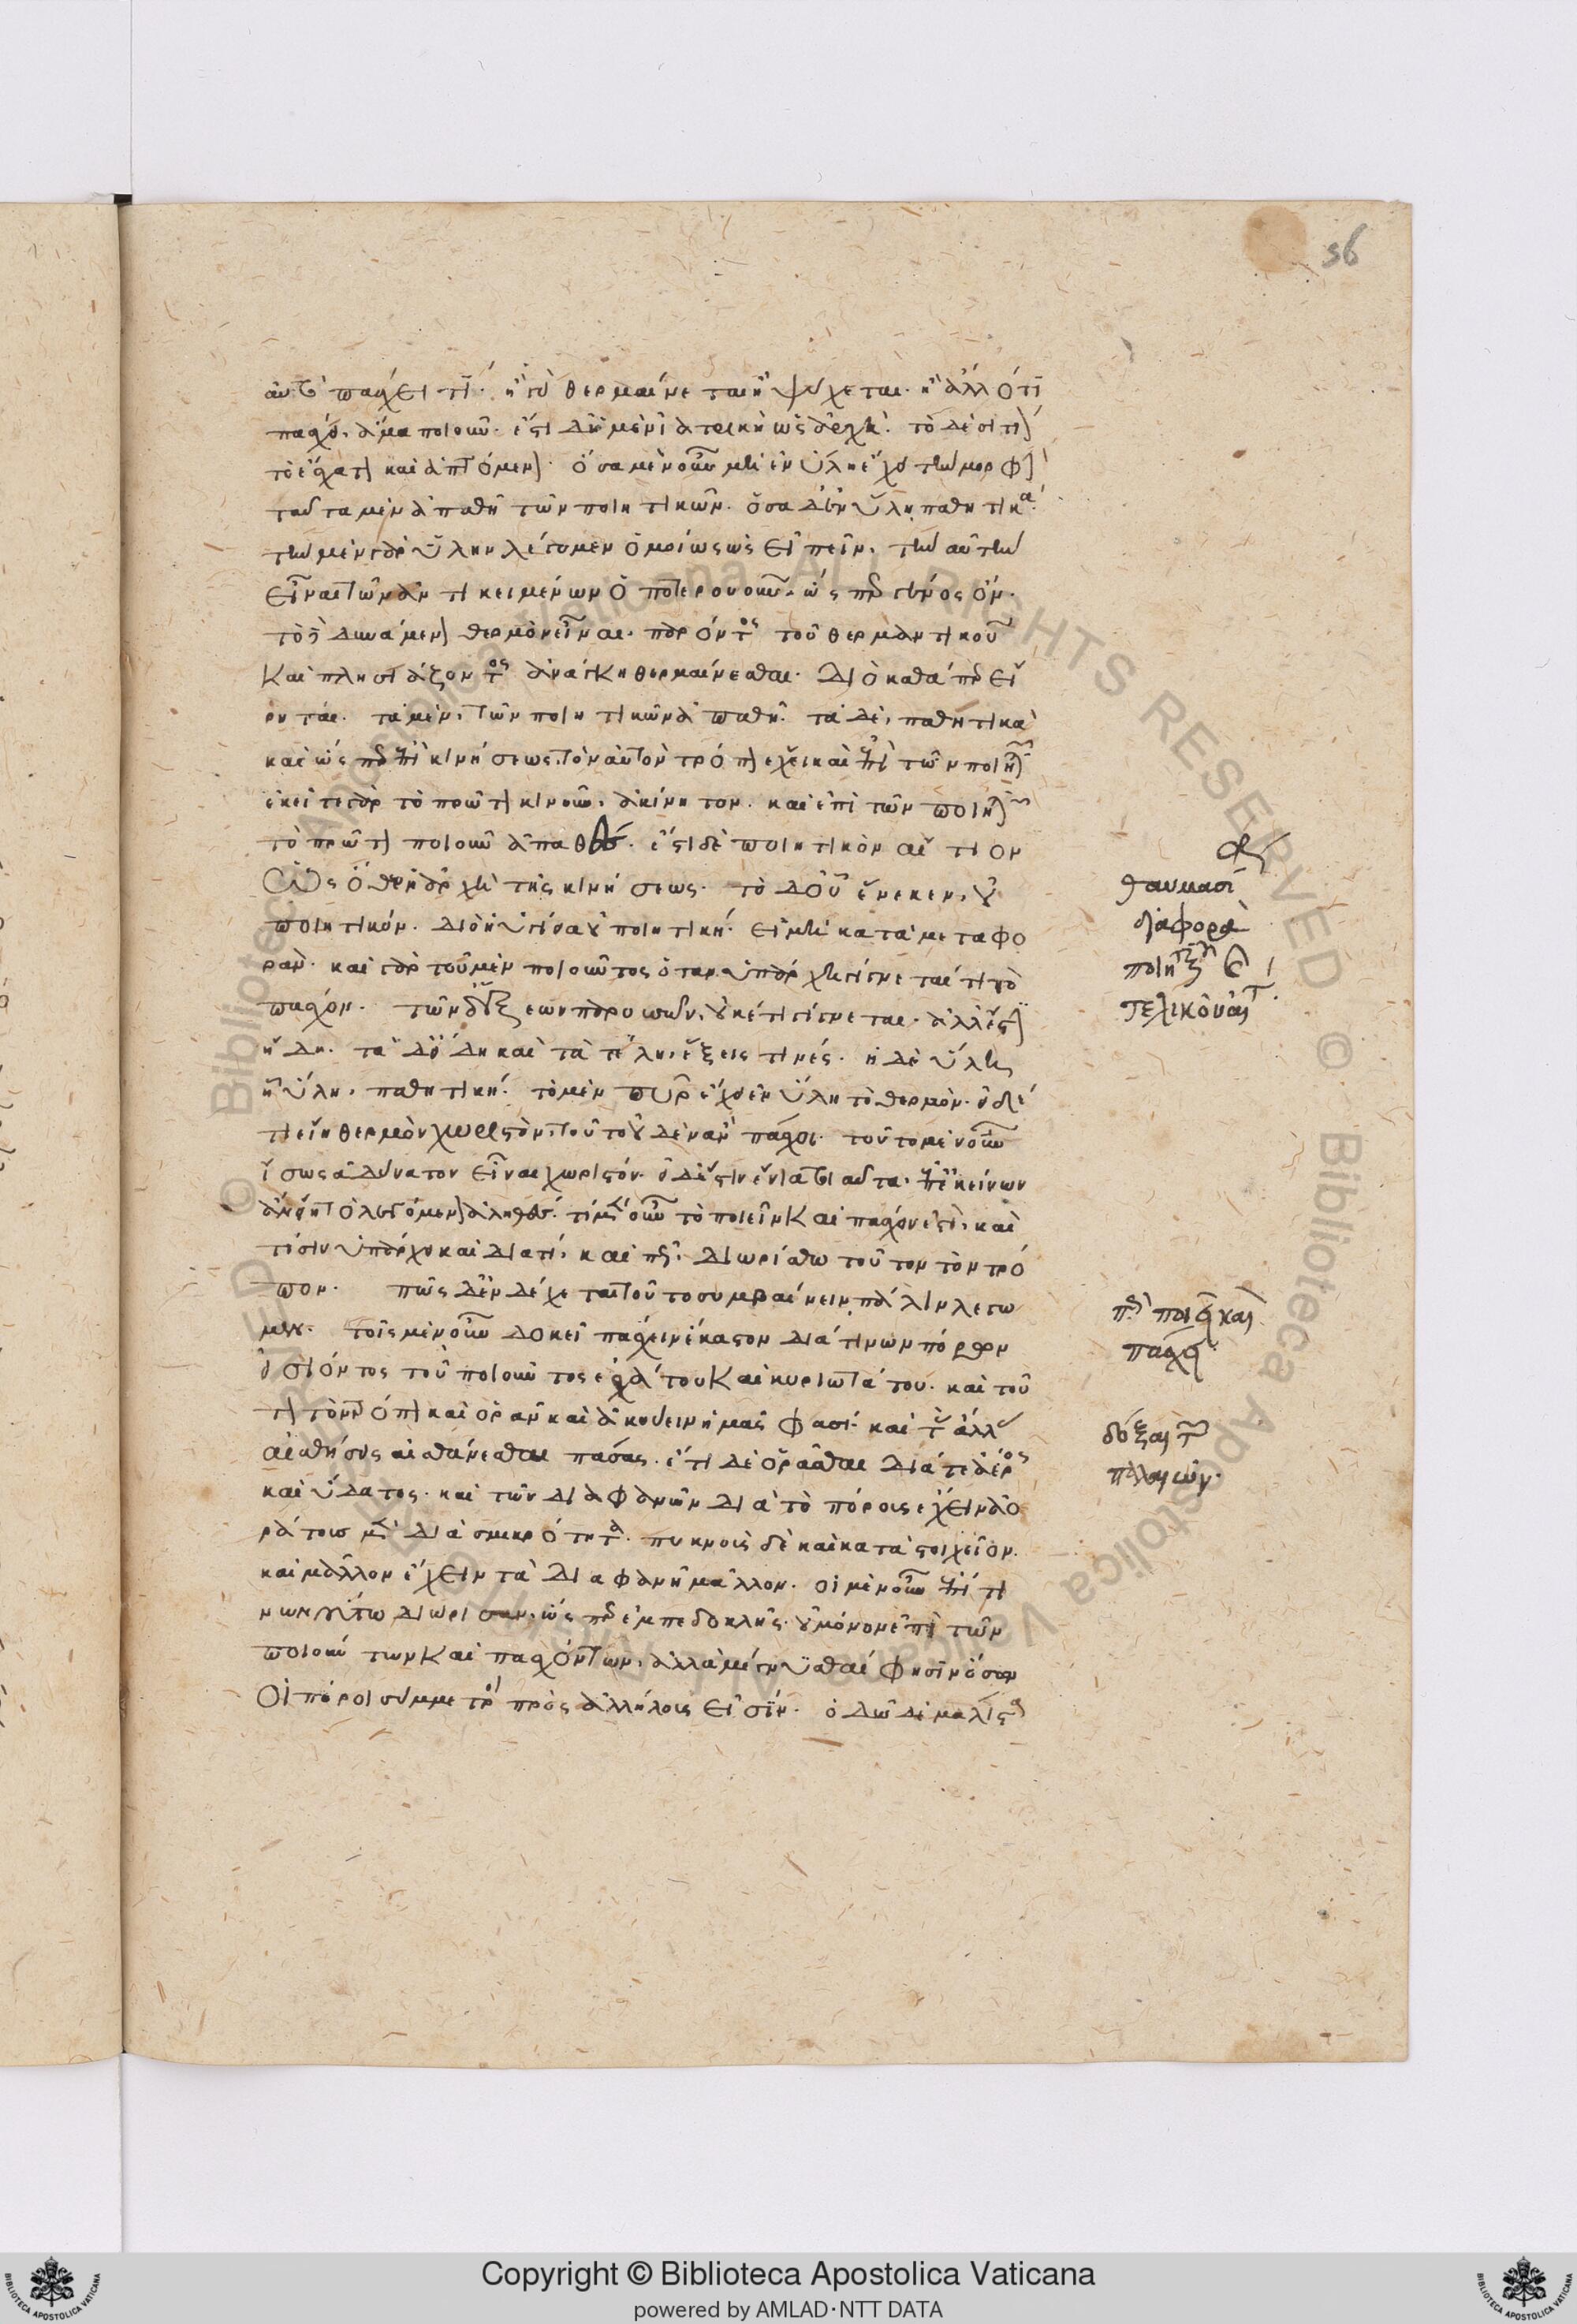 56
αὐτὸ πάσχει τι· ἢ γὰρ θερμαίνεται ἢ ψύχεται· ἢ ἄλλό τι
πάσχει, ἅμα ποιοῦν· ἔστι δὲ ἡ μὲν ἰατρικὴ ὡς ἀρχὴ· τὸ δὲ σιτίον
τὸ ἔσχατον καὶ ἁπτόμενον· ὅσα μὲν οὖν μὴ ἐν ὕλῃ ἔχει τὴν μορφὴν
ταῦτα μὲν ἀπαθῆ τῶν ποιητικῶν· ὅσα δ' ἐν ὕλῃ παθητικά·
τὴν μὲν γὰρ ὕλην λέγομεν ὁμοίως ὡς εἰπεῖν, τὴν αὐτὴν
εἶναι τῶν ἀντικειμένων ὁποτερονοῦν, ὥσπερ γένος ὄν·
τὸ δὲ δυνάμενον θερμὸν εἶναι, παρόντος τοῦ θερμαντικοῦ
καὶ πλησιάζοντος ἀνάγκη θερμαίνεσθαι· διὸ καθάπερ εἴ
ρηται, τὰ μὲν, τῶν ποιητικῶν ἀπαθῆ· τὰ δὲ, παθητικὰ
καὶ ὥσπερ ἐπὶ κινήσεως, τὸν αὐτὸν τρόπον ἔχει καὶ ἐπὶ τῶν ποιητικῶν
ἐκεῖ τε γὰρ τὸ πρώτον κινοῦν, ἀκίνητον· καὶ ἐπὶ τῶν ποιητικῶν
τὸ πρῶτον ποιοῦν ἀπαθές· ἔστι δὲ ποιητικὸν αἴτιον
ὡς ὅθεν ἡ ἀρχὴ τῆς κινήσεως· τὸ δ' οὗ ἕνεκεν, οὐ
ποιητικόν· διὸ ἡ ὑγίεια οὐ ποιητική· εἰ μὴ κατὰ μεταφο
ράν· καὶ γὰρ τοῦ μὲν ποιοῦντος ὅταν ὑπάρχῃ γίγνεταί τι τὸ
πάσχον· τῶν δ' ἕξεων παρουσῶν, οὐκέτι γίγνεται· ἀλλ' ἔστιν
ἤδη· τὰ δ' εἴδη καὶ τὰ τέλη, ἕξεις τινές· ἡ δὲ ὕλη
ἢ ὕλη, παθητική· τὸ μὲν πῦρ ἔχει ἐν ὕλῃ τὸ θερμόν· εἰ δέ
τι εἴη θερμὸν χωριστὸν, τοῦτο οὐδὲν ἂν πάσχοι· τοῦτο μὲν οὖν
ἴσως ἀδύνατον εἶναι χωριστόν· εἰ δ' ἔστιν ἔνια τοιαῦτα, ἐπ' ἐκείνων
ἂν εἴη τὸ λεγόμενον ἀληθές· τί μὲν οὖν τὸ ποιεῖν καὶ πάσχειν ἐστὶ, καὶ
τίσιν ὑπάρχει καὶ διατί, καὶ πῶς, διωρίσθω τοῦτον τὸν τρό
πον· πῶς δὲ ἐνδέχεται τοῦτο συμβαίνειν, πάλιν λέγω
μεν· τοῖς μὲν οὖν δοκεῖ πάσχειν ἕκαστον διά τινων πόρων
εἰσιόντος τοῦ ποιοῦντος ἐσχάτου καὶ κυριωτάτου· καὶ τοῦ
τον τὸν τρόπον καὶ ὁρᾶν καὶ ἀκούειν ἡμᾶς φασί· καὶ τὰς ἄλλας
αἰσθήσεις αἰσθάνεσθαι πάσας· ἔτι δὲ ὁρᾶσθαι διά τε ἀέρος
καὶ ὕδατος· καὶ τῶν διαφανῶν διὰ τὸ πόρους ἔχειν ἀο
ράτους μὲν διὰ σμικρότητα· πυκνοὺς δὲ καὶ κατὰ στοιχεῖον·
καὶ μᾶλλον ἔχειν τὰ διαφανῆ μᾶλλον· οἱ μὲν οὖν ἐπί τι
νων οὕτω διώρισαν, ὥσπερ ἐμπεδοκλῆς· οὐ μόνον ἐπὶ τῶν
ποιούντων καὶ πασχόντων, ἀλλὰ μίγνυσθαί φησιν ὅσων
οἱ πόροι σύμμετροι πρὸς ἀλλήλους εἰσίν· ὁδῷ δὲ μάλιστα
διαφορὰ
τελικοῦ
περὶ ποιεῖν καὶ
πάσχειν
δόξαι τῶν
παλαιῶν·